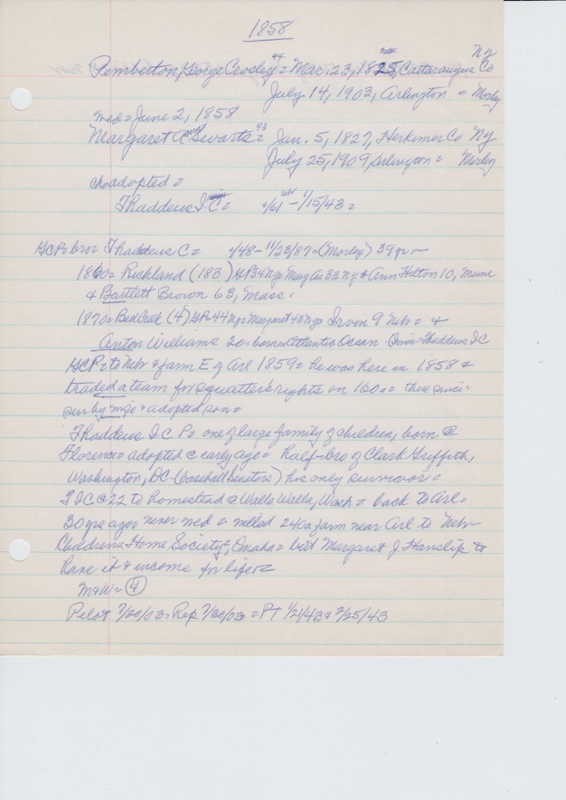 1858
NY
Pemberton, George Crosley = Mar. 23, 1825, Cattaraugus Co
July 14, 1903, Arlington = Morley
med = June 2, 1858
Margaret A Swarts = Jan. 5, 1827, Herkimer Co NY
July 25, 1909, Arlington = Morley
ch adopted =
Thaddeus I C = c/61 - 1/15/43 =
GCP = bro = Thaddeus C = c/48 - 11/23/87 = (Morley) 39 yr -
1860 = Richland (183) GP 34 NY Marg A 33 NY & Ann Hilton 10, Maine
& Bartlett Brown 63, Mass.
1870 = Bell Creek (4) GP 44 NY = Margaret 43 NY = Irvin 9 Nebr = &
Anton Williams 20 = born Atlantic Ocean Thaddeus IC
GCP = to Nebr & farm E of Arl 1859 = he was here in 1858 &
traded a team for squatter's rights on 160a = there since =
sur by wife & adopted son =
Thaddeus I C P = one of large family of children, born @
Florence = adopted @ early age = half-bro of Clark Griffith,
Washington, DC (baseball Senators) his only survivor =
T I C @ 22 to homestead @ Walla Walla, Wash = back to Arl =
30 yrs ago = never med = willed 240 a farm near Arl to Nebr
Childrens Home Society, Omaha = but Margaret J Hanslip to
have it & income for life =
M&W = (4)
Pilot 7/20/03 = Rep 7/30/03 = PT 1/21/43 & 2/25/43